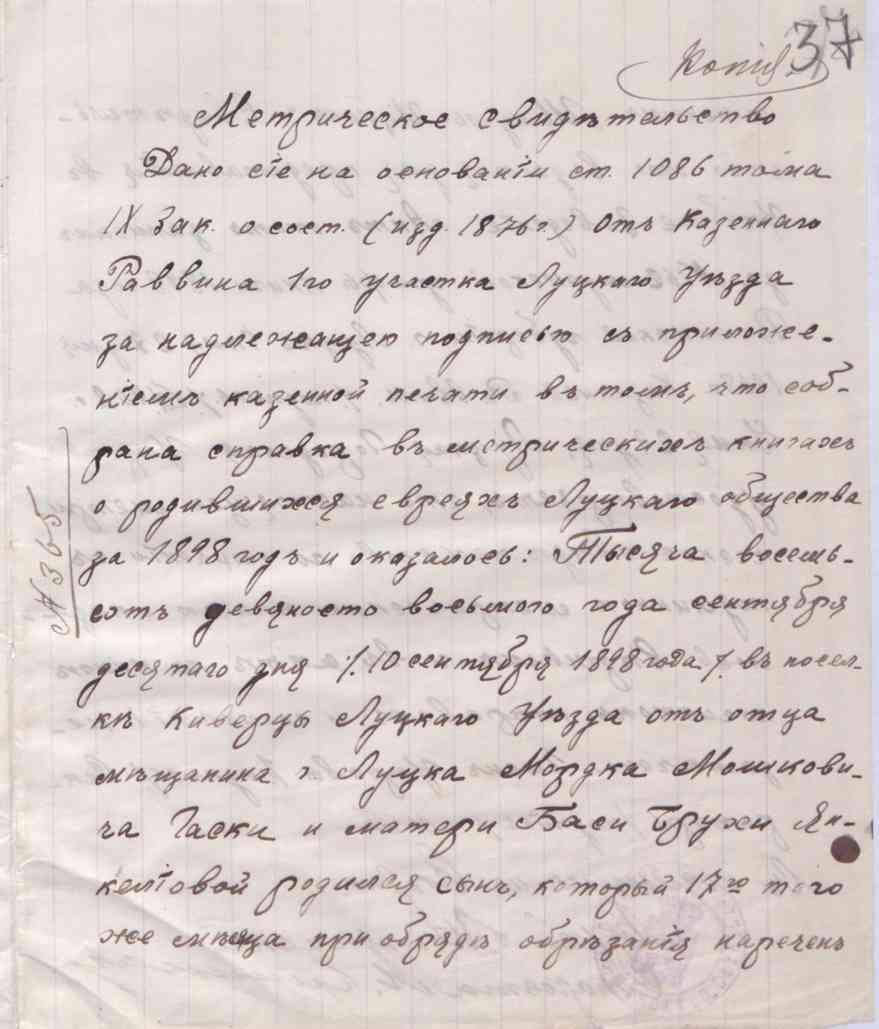 37
Копія.
Метрическое свидѣтельство
Дано сіе на основаніи ст. 1086 тома
IX Зак. о сост. (изд. 1876 г.) Отъ Казеннаго
Раввина 1го участка Луцкаго Уѣзда
за надлежащею подписью съ приложе-
ніемъ казенной печати въ томъ, что соб-
рана справка въ метрическихъ книгахъ
о родившихся евреяхъ Луцкаго общества
за 1898 годъ и оказалось: Тысяча восемь-
сотъ девяносто восьмого года сентября
десятаго дня /. 10 сентября 1898 года /. въ посел-
кѣ Киверцы Луцкаго Уѣзда отъ отца
мѣщанина г. Луцка Мордка Мошкови-
ча Гаски и матери Баси Брухи Ян-
келіовой родился сынъ, который 17го того
же мѣсяца при обрядѣ обрѣзанія нареченъ
№ 365